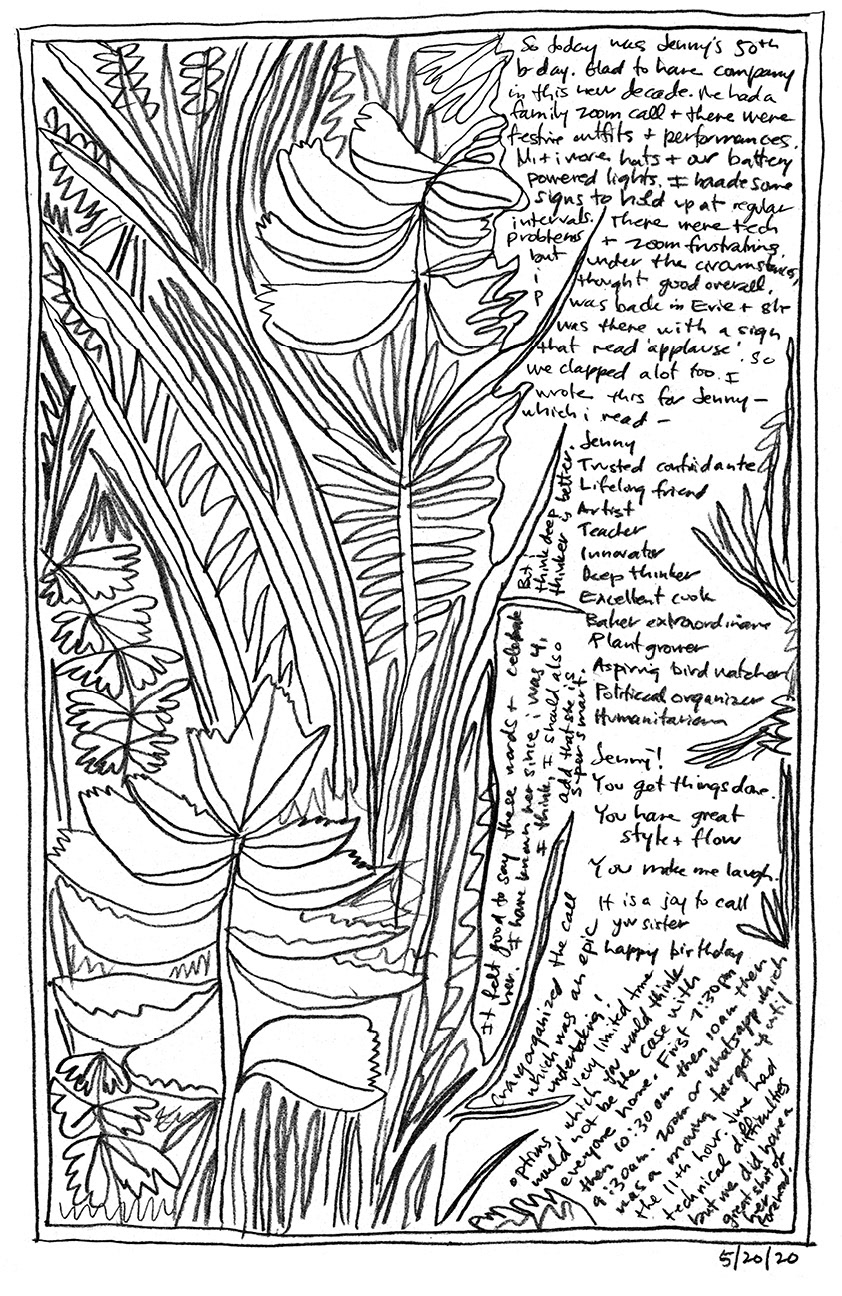 So today was Jenny's 50th
b-day. Glad to have company
in this new decade. We had a
family zoom call + there were
festive outfits + performances.
M. + i wore hats + our battery
powered lights. I made some
signs to hold up at regular
intervals. There were tech
problems + zoom frustrating
but under the circumstances,
i thought good overall.
P was back in Erie + she
was there with a sign
that read 'applause'. So
we clapped a lot too. I
wrote this for Jenny –
which i read –
Jenny
Trusted confidante
Lifelong friend
Artist
Teacher
Innovator
Deep thinker
Excellent cook
Baker extraordinaire
Plant grower
Aspiring bird watcher
Political organizer
Humanitarian
Jenny!
You get things done.
You have great
style + flow
You make me laugh.
It is a joy to call
yw sister
happy birthday
It felt good to say these words + celebrate
her. I have known her since i was 4,
I think, I should also
add that she is
super smart.
But i
think deep
thinker is better.
Craig organized the call
which was an epic
undertaking!
Very limited time
options, which you would think
would not be the case with
everyone home. First 7:30pm
then 10:30 am then 10am then
9:30am. Zoom or whatsapp which
was a moving target up until
the 11th hour. June had
technical difficulties
but we did have a
great shot of
her
forehead.
5/20/20